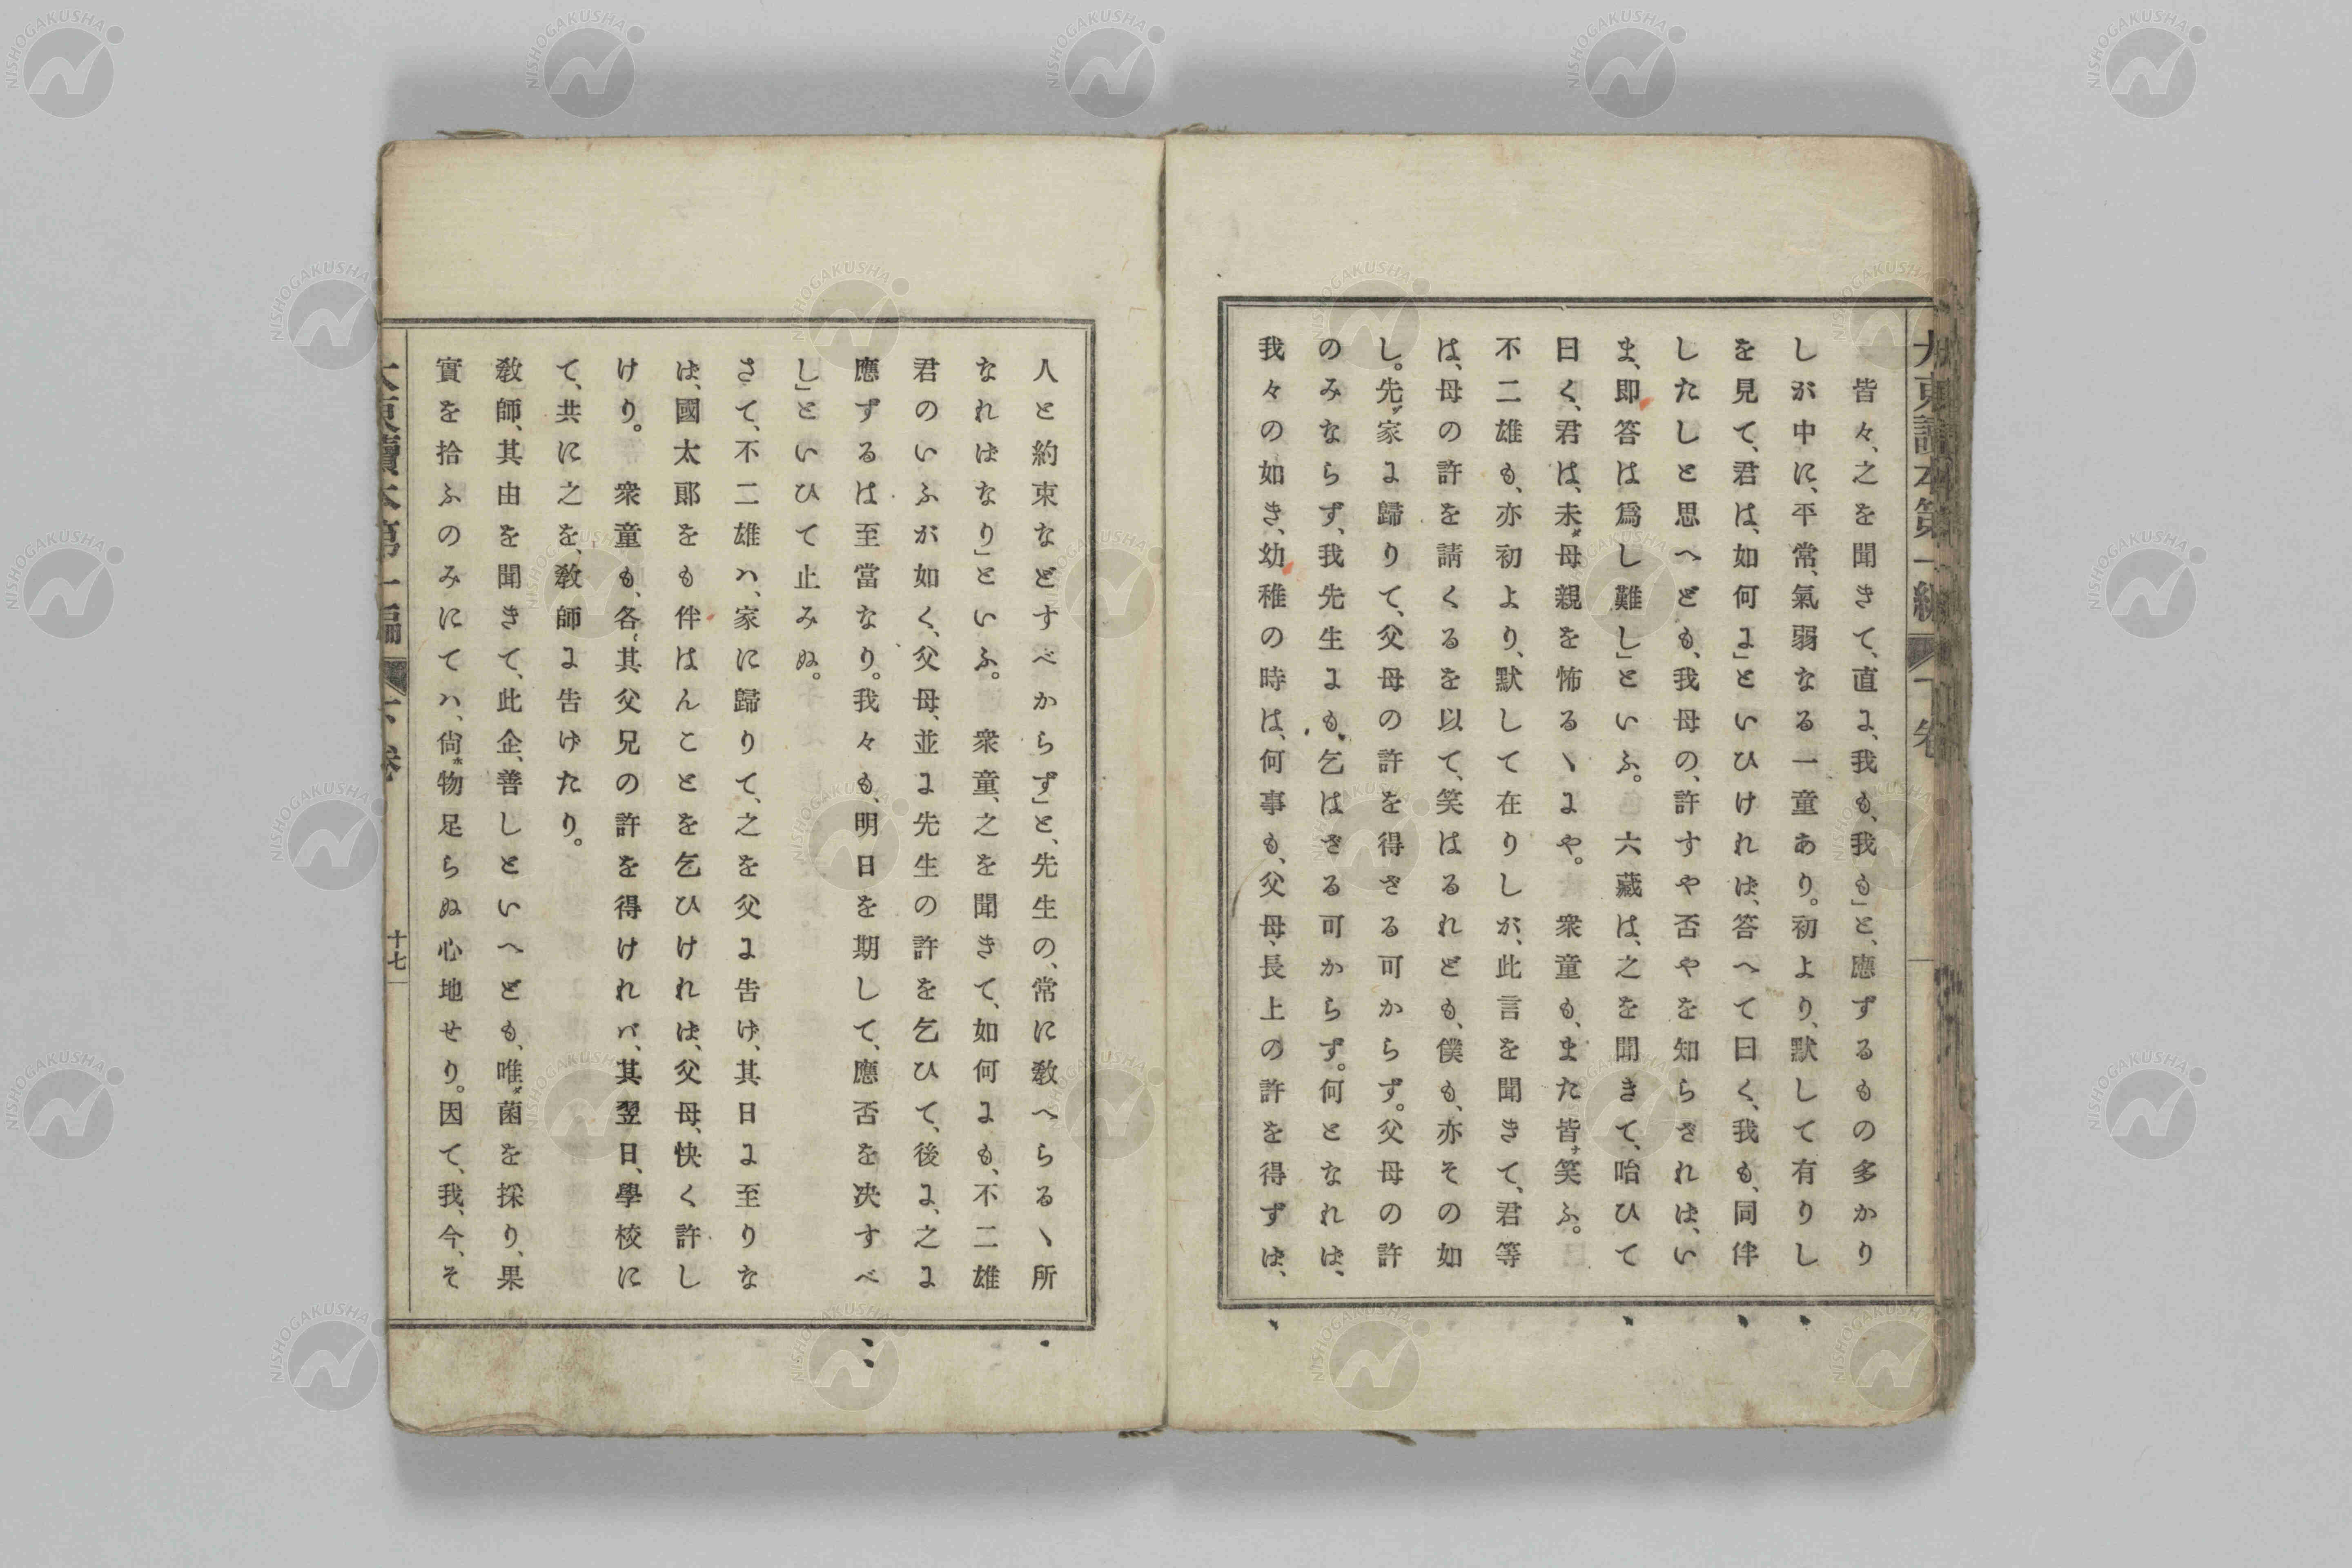 大東讀本第一編 下卷
皆々、之を聞きて、直よ、我も、我も」と、應ずるもの多かり
しが中に、平常、氣弱なる一童あり。初より、默して有りし
を見て、君は、如何よ」といひけれは、答へて曰く、我も、同伴
したしと思へども、我母の、許すや否やを知らされは、い
ま、即答は爲し難し」といふ。六藏は、之を聞きて、咍ひて
曰く、君は、未ダ母親を怖るヽよや。衆童も、また皆ナ笑ふ。
不二雄も、亦初より、默して在りしが、此言を聞きて、君等
は、母の許を請くるを以て、笑はるれども、僕も、亦その如
し。先ヅ家よ歸りて、父母の許を得さる可からず。父母の許
のみならず、我先生よも、乞はさる可からず。何となれは、
我々の如き、幼稚の時は、何事も、父母、長上の許を得ずは、
人と約束などすべからず」と、先生の、常に敎へらるヽ所
なれはなり」といふ。衆童、之を聞きて、如何よも、不二雄
君のいふが如く、父母、並よ先生の許を乞ひて、後よ、之よ
應ずるは至當なり。我々も、明日を期して、應否を决すべ
し」といひて止みぬ。
さて、不二雄ハ、家に歸りて、之を父よ告け、其日よ至りな
は、國太郎をも伴はんことを乞ひけれは、父母、快く許し
けり。衆童も、各〻其父兄の許を得けれバ、其翌日、學校に
て、共に之を、敎師よ告けたり。
敎師、其由を聞きて、此企、善しといへども、唯ダ菌を採り、果
實を拾ふのみにてハ、尙ホ物足らぬ心地せり。因て、我、今、そ
大東讀本第一編 下卷 十七
NISHOGAKUSHA